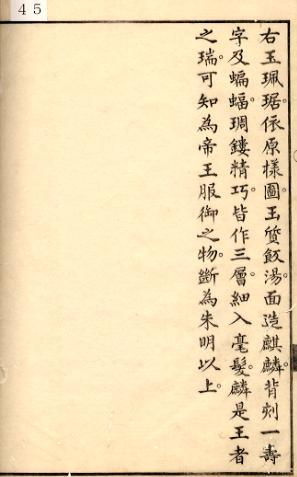 45
右玉珮琚。依原樣圖。玉質飯湯。面造麒麟。背刻一壽
字及蝙蝠。琱鏤精巧。皆作三層。細入毫髮。麟是王者
之瑞。可知為帝王服御之物。斷為朱明以上。